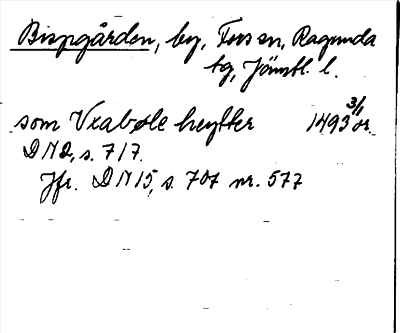 Bispgården, by, Fors sn, Ragunda
tg, Jämtl. l.
som Vxabøle heytter 1493 3/1 or.
DN2, s. 717.
Jfr. DN15, s. 707 nr. 577